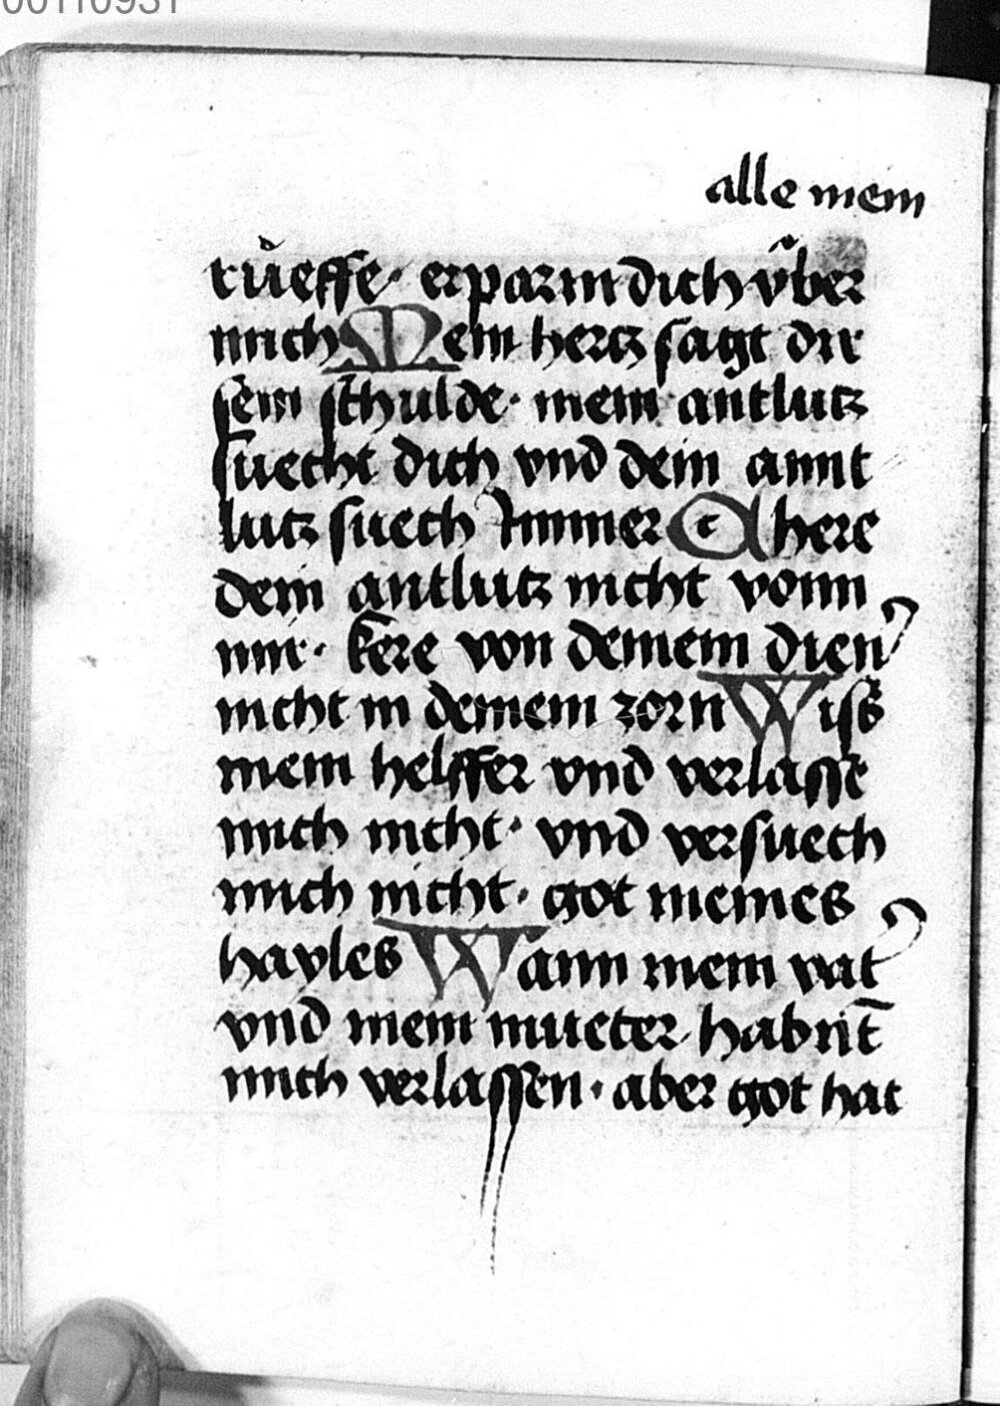 00110931
alle mein
růeffe · erparm dich v̈ber
mich Mein hertz sagt dir
sein schulde · mein antlutz
suecht dich vnd dein annt
lutz suech Immer A here
dein antlutz nicht vonn
mir · kere von deinem dien᾽
nicht in deinem zorn Wiss
mein helffer vnd verlasse
mich nicht · vnd versuech
mich nicht · got meines
hayles Wann mein vat᾽
vnd mein mueter habnt̄
mich verlassen · aber got hat